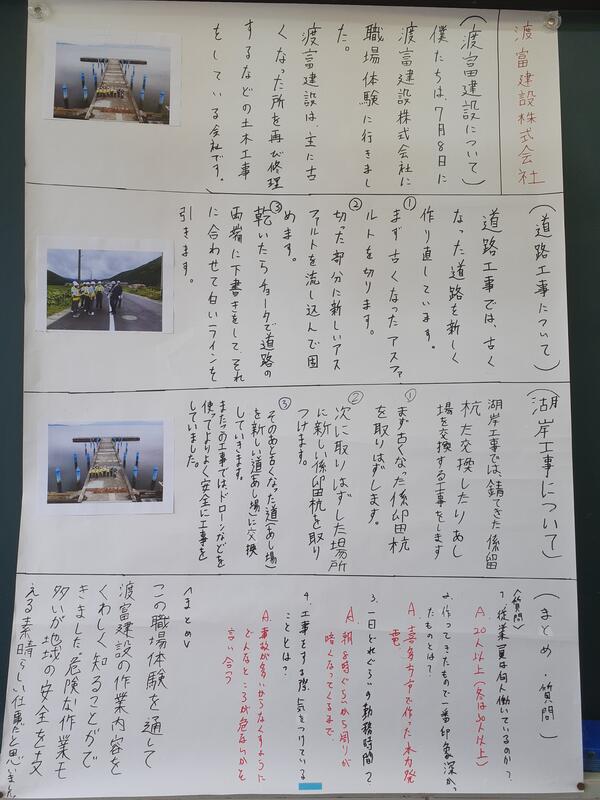 渡富建設株式会社
(渡富建設について)
僕たちは、7月8日に
渡富建設株式会社に
職場体験に行きまし
た。
渡富建設は、主に古
くなった所を再び修理
するなどの土木工事
をしている会社です。
(道路工事について)
道路工事では、古く
なった道路を新しく
作り直しています。
①まず古くなったアスファ
ルトを切ります。
②切った部分に新しいアス
ファルトを流し込んで固
めます。
③乾いたらチョークで道路の
両端に下書きをして、それ
に合わせて白いラインを
引きます。
(湖岸工事について)
湖岸工事では、錆できた係留
杭を交換したりあし
場を交換する工事をします
①まず古くなった係留杭
を取りはずします。
②次に取りはずした場所
に新しい係留杭を取り
つけます。
③そのあと古くなった道(あし場)
を新しい道(あし場)に交換
していきます。
またこの工事では、ドローンなどを
使ってよりよく安全に工事を
していました。
(まとめ・質問)
<質問>
1.従業員は何人働いているのか?
A.20人以上(冬は30人以上)
2.作ってきたもので一番印象深かっ
たものとは?
A.喜多方市で作った水力発
電
3.一日どれぐらいの勤務時間?
A.朝8時ぐらいから周りが
暗くなってくるまで
4.工事をする際、気をつけている
こととは?
A.事故が多いからなくすように
どんなところが危ないかを
言い合う
<まとめ>
この職場体験を通して
渡富建設の作業内容を
くわしく知ることがで
きました。危険な作業も
多いが地域の安全を支
える素晴らしい仕事だと思いました。